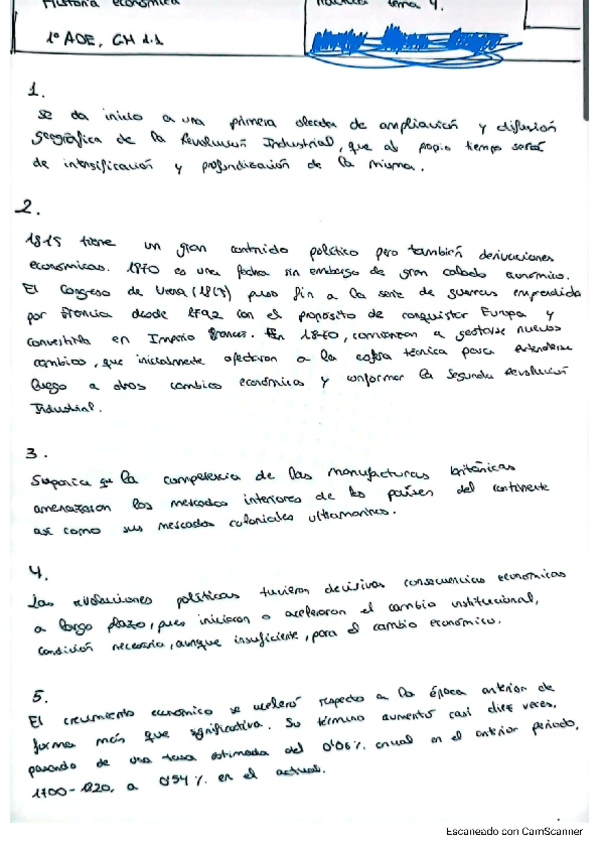 Historia económica
tema 4.
1º ADE, GH 1.1
1.
se da inicio a una primera oleada de ampliación y difusión
geográfica de la Revolución Industrial, que al propio tiempo será
de intensificación y profundización de la misma.
2.
1815 tiene un gran contenido político pero también derivaciones
económicas. 1870 es una fecha sin embargo de gran calado económico.
El Congreso de Viena (1815) puso fin a la serie de guerras emprendida
por Francia desde 1792 con el propósito de conquistar Europa y
convertirla en Imperio francés. En 1870, comienzan a gestarse nuevos
cambios, que inicialmente afectaron a la esfera técnica para extenderse
luego a otros cambios económicos y conformar la Segunda Revolución
Industrial.
3.
Suponía que la competencia de las manufacturas británicas
amenazaron los mercados interiores de los países del continente
así como sus mercados coloniales ultramarinos.
4.
Las revoluciones políticas tuvieron decisivas consecuencias económicas
a largo plazo, pues iniciaron o aceleraron el cambio institucional,
condición necesaria, aunque insuficiente, para el cambio económico.
5.
El crecimiento económico se aceleró respecto a la época anterior de
forma más que significativa. Su término aumentó casi diez veces,
pasando de una tasa estimada del 0'06% anual en el anterior periodo,
1700-1820, a 0'54% en el actual.
Escaneado con CamScanner